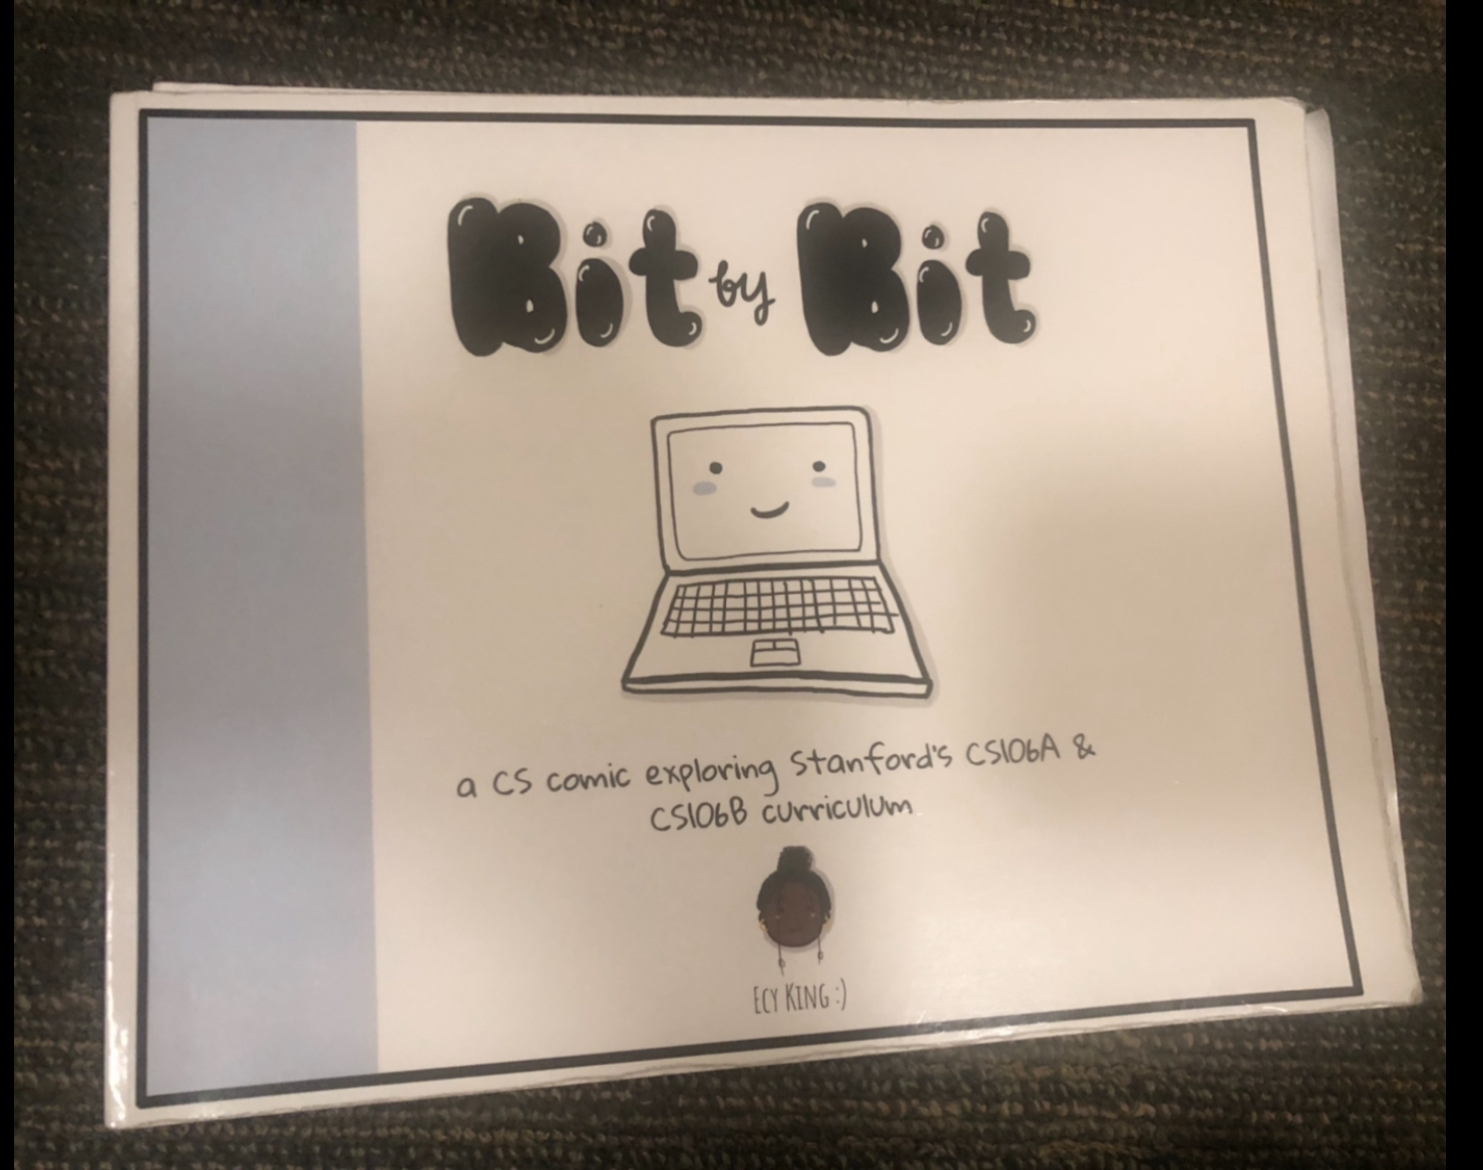 Bit by Bit
a CS comic exploring Stanford's CS106A &
CS106B curriculum
ECY KING :)